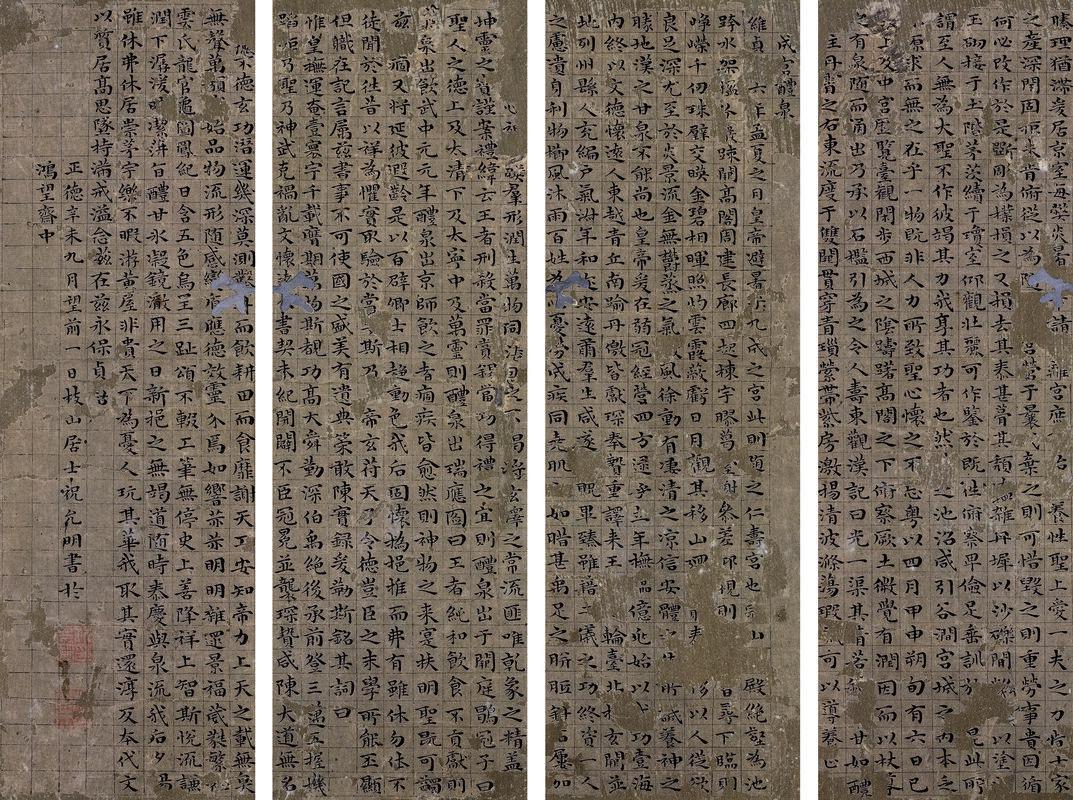 腠理猶滯爰居京室每弊炎暑請離宮庶怡養性聖上愛一夫之力惜十家
之產深閉固拒未肯俯從以為隨營于曩代棄之則可惜毀之則重勞事貴因循
何必改作於是斲周為樸損之又損去其泰甚葺其頹壞雜丹墀以沙礫間以塗
玉砌接于土階茅茨續于瓊室仰觀壯麗可作鑒於既往俯察卑儉足垂訓於昆此所
謂至人無為大聖不作彼竭其力我享其功者也然之池沼咸引谷澗宮城之內本乏
源求而無之在乎一物既非人力所致聖心懷之不忘粵以四月甲申朔旬有六日己
上及中宮歷覽臺觀閑步西城之陰躊躇高閣之下俯察厥土微覺有潤因而以杖導
之有泉隨而涌出乃承以石檻引為之令人壽東觀漢記曰光一渠其清若甘如醴
主丹霄之右東流度于雙闕貫穿青瑣縈帶紫房激揚清波滌蕩瑕可以導養正
成宮醴泉
維貞六年孟夏之月皇帝避暑乎九成之宮此則隨之仁壽宮也冠山殿絕壑為池
跨水架楹分巖竦闕高閣周建長廊四起棟宇膠葛榭參差仰視則尋下臨則
崢嶸千仞珠璧交映金碧相暉照灼雲霞蔽虧日月觀其移山回侈以人從欲
良足深尤至於炎景流金無鬱蒸之氣微風徐動有淒清之涼信安體之佳所誠養神之
勝地漢之甘泉不能尚也皇帝爰在弱冠經營四方逮乎立年撫臨億兆始以功壹海
內終以文德懷遠人東越青丘南踰丹徼皆獻琛奉贄重譯來王輪臺北玄闕並
地列州縣人充編戶氣淑年和邇安遠肅羣生咸遂貺畢臻雖藉二儀之功終資一人
之慮遺身利物櫛風沐雨百姓為憂勞成疾同堯肌如腊甚禹足之胼胝針石屢加
羣形潤生萬物同湛恩之不曷將玄澤之常流匪唯乾象之精蓋
坤靈之寶謹案禮緯云王者刑殺當罪賞錫當功得禮之宜則醴泉出于闕庭鶡冠子曰
聖人之德上及太清下及太寧中及萬靈則醴泉出瑞應圖曰王者純和飲食不貢獻則
泉出飲武中元元年醴泉出京師飲之者痼疾皆愈然則神物之來寔扶明聖既可蠲
茲痼又將延彼遐齡是以百辟卿士相趨動色我后固懷撝挹推而弗有雖休勿休不
徒聞於往昔以祥為懼實取驗於當今斯乃帝玄符天子令德豈臣之末學所能丕顯
但職在記言屬茲書事不可使國之盛美有遺典策敢陳實錄爰勒斯銘其詞曰
惟皇撫運奄壹寰宇千載膺期萬物斯覩功高大舜勤深伯禹絕後承前登三邁五握機
蹈矩乃聖乃神武克禍亂文懷遠書契未紀開闢不臣冠冕並襲琛贄咸陳大道無名
德不德玄功潛運幾深莫測鑿井而飲耕田而食靡謝天工安知帝力上天之載無臭
無聲萬類始品物流形隨感變質應德效靈介焉如響赫赫明明雜遝景福葳蕤繁
雲氏龍官龜圖鳳紀日含五色烏呈三趾頌不輟工筆無停史上善降祥上智斯悅流謙
潤下潺湲皎潔萍旨醴甘冰凝鏡澈用之日新挹之無竭道隨時泰慶與泉流我后夕惕
雖休弗休居崇茅宇樂不暇游黃屋非貴天下為憂人玩其華我取其實還淳反本代文
以質居高思墜持滿戒溢念茲在茲永保貞吉
正德辛未九月望前一日枝山居士祝允明書於
鴻望齋中